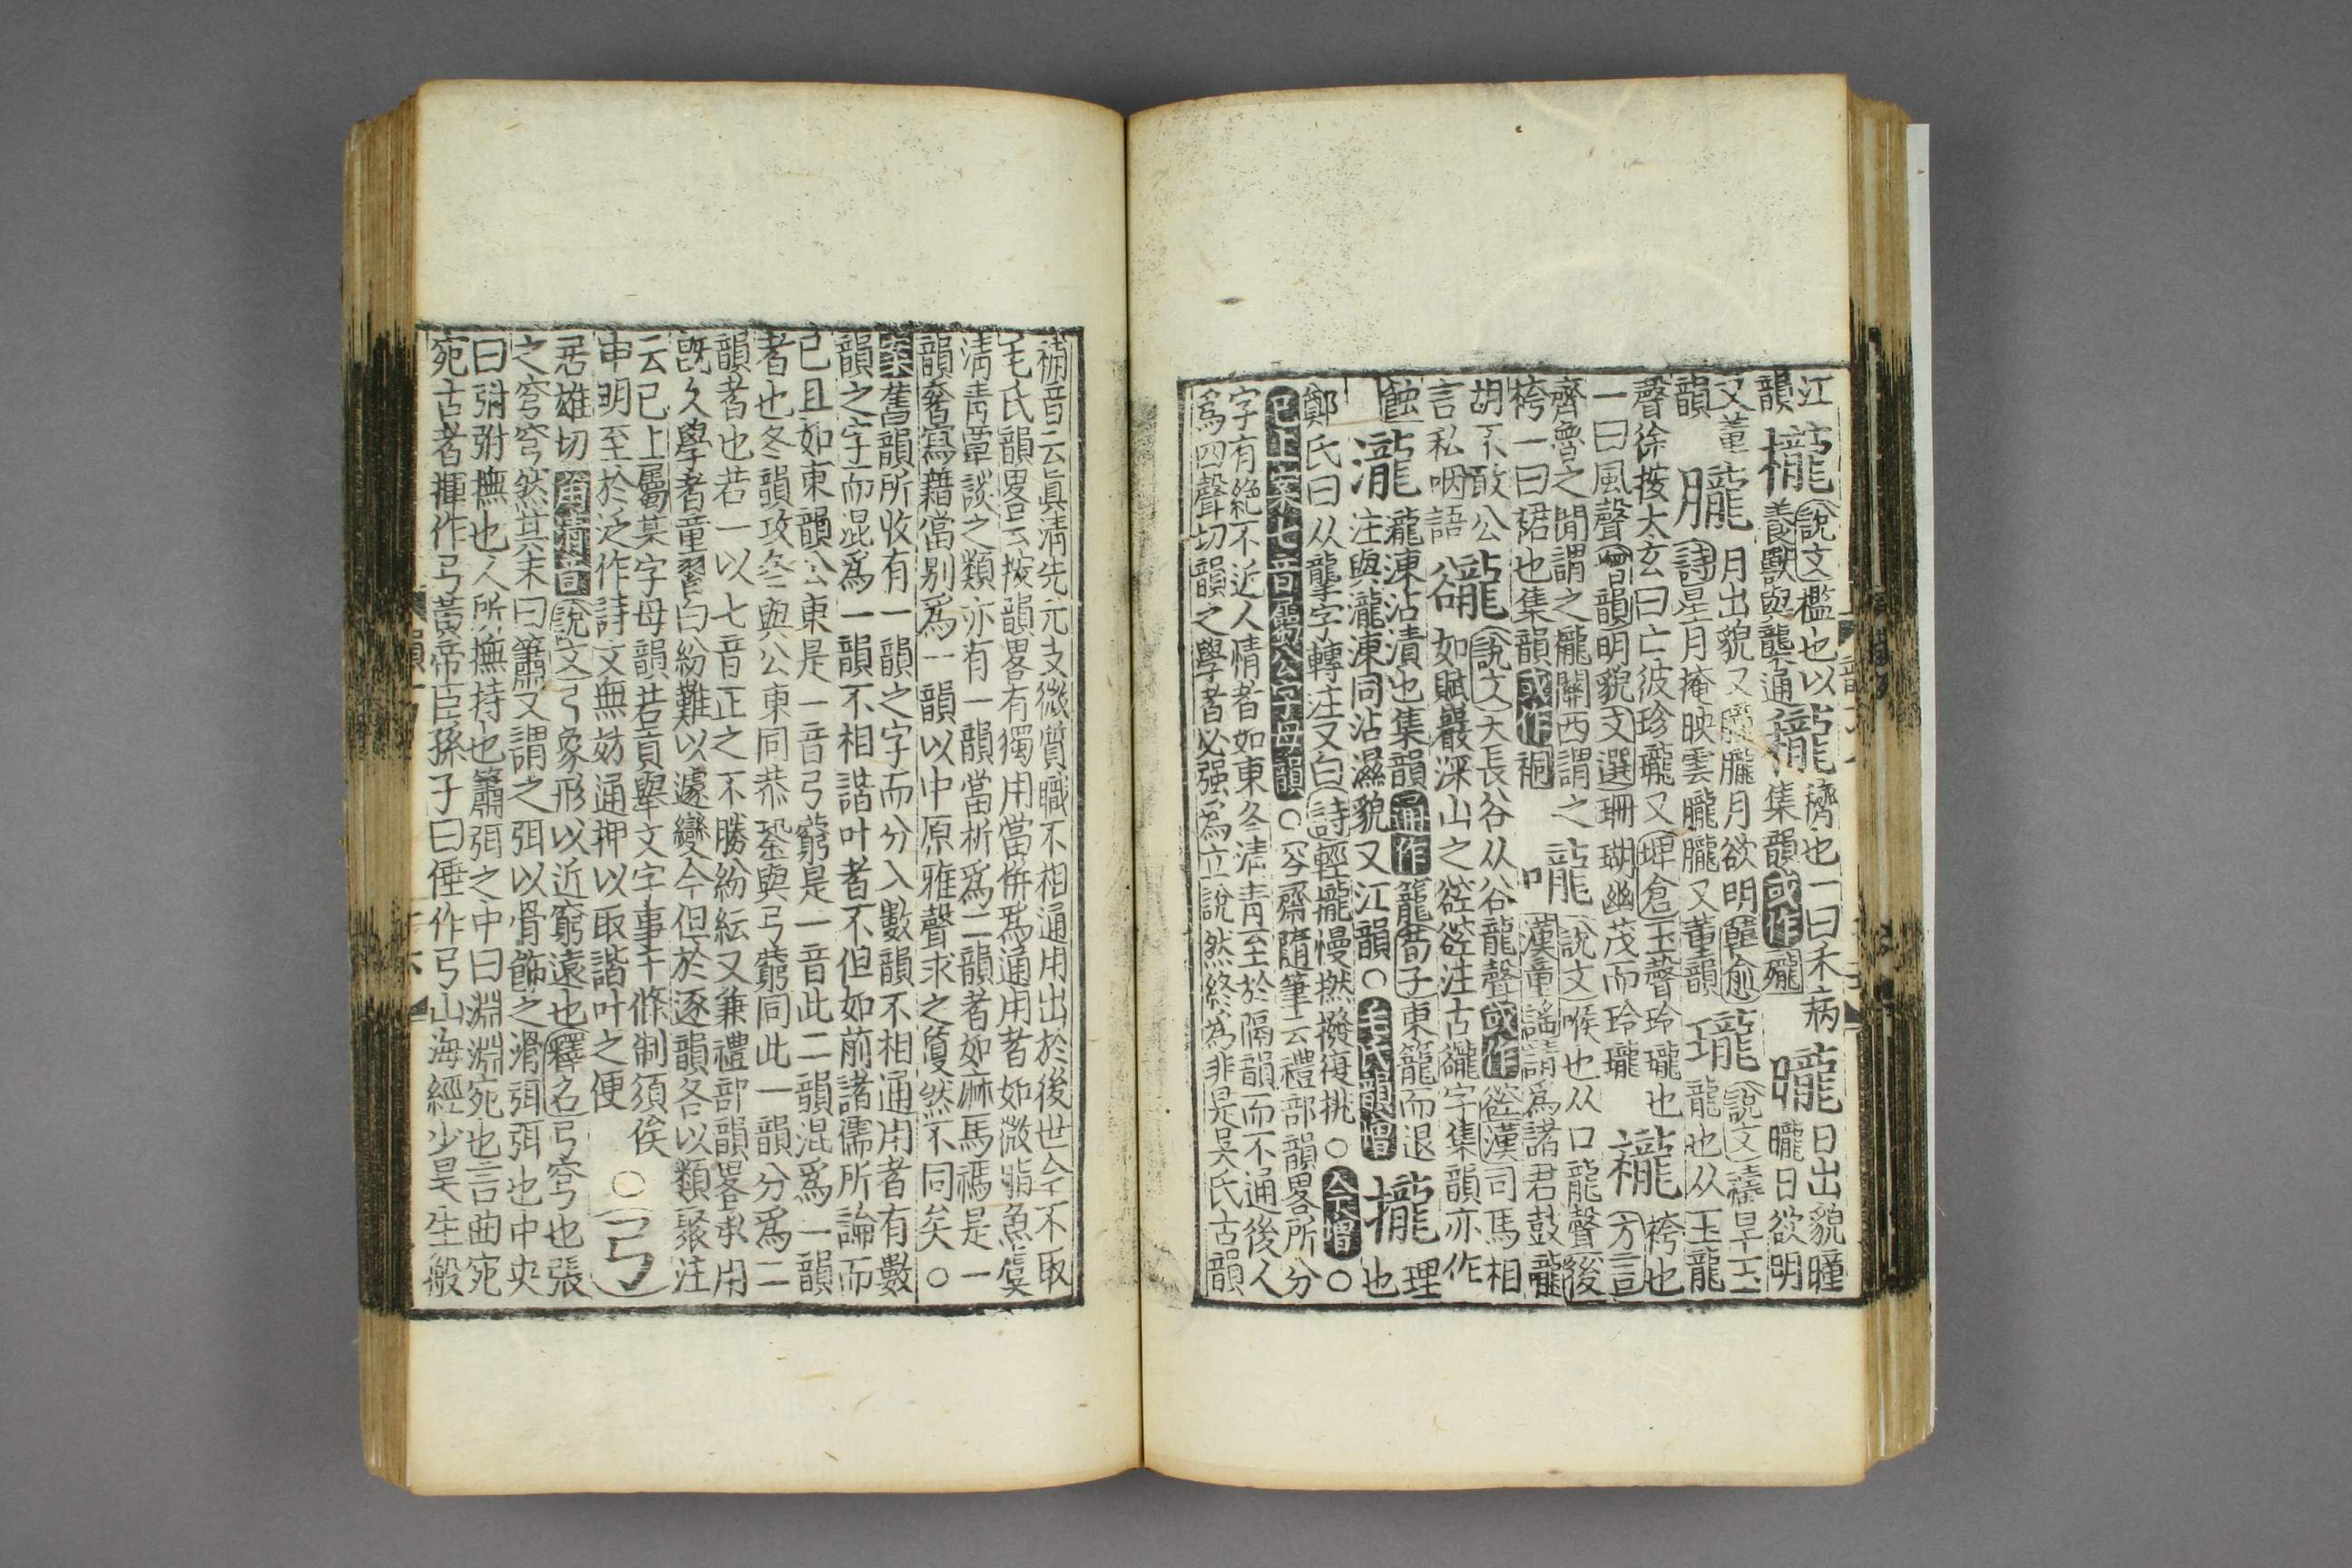 江韻櫳說文檻也以養獸與龒通穧也一曰禾病集韻或作曨日出貌曈曨日欲明
又董韻朧月出貌又朣朧月欲明韓愈詩星月掩映雲朣朧又董韻瓏說文禱旱玉龍也从玉龍
聲徐按太玄曰亡彼珍瓏又埤倉玉聲玲瓏也一曰風聲增韻明貌文選珊瑚幽茂而玲瓏襱袴也方言
齊魯之間謂之襱關西謂之袴一曰裙也集韻或作嚨說文喉也从口龍聲後漢童謠請爲諸君鼓嚨
胡不敢公言私咽語豅說文大長谷从谷龍聲或作谾漢司馬相如賦巖深山之谾谾注古豅字集韻亦作
瀧瀧涷沾漬也集韻通作籠荀子東籠而退注與瀧涷同沾濕貌又江韻○毛氏韻增攏理也
鄭氏曰从龍手字轉注又白詩輕攏慢撚撥復挑○今增○已上案七音屬公字母韻○容齋隨筆云禮部韻畧所分
字有絶不近人情者如東冬清青至於隔韻而不通後人
爲四聲切韻之學者必强爲立說然終爲非是吳氏古韻
補音云眞清先元支微質職不相通用出於後世今不取
毛氏韻畧云按韻畧有獨用當併爲通用者如微脂魚虞
清青覃談之類亦有一韻當析爲二韻者如麻馬禡是一
韻奢寫藉當别爲一韻以中原雅聲求之夐然不同矣○
案舊韻所收有一韻之字而分入數韻不相通用者有數
韻之字而混爲一韻不相諧叶者不但如前諸儒所論而
已且如東韻公東是一音弓䓖是一音此二韻混爲一韻
者也冬韻攻冬與公東同恭蛩與弓䓖同此一韻分爲二
韻者也若一以七音正之不勝紛紜又兼禮部韻畧承用
旣久學者童習白紛難以遽變今但於逐韻各以類聚注
云已上屬某字母韻若貢舉文字事干條制須俟
申明至於泛作詩文無妨通押以取諧叶之便○弓
居雄切角清音說文弓象形以近窮遠也釋名弓穹也張
之穹穹然其末曰簫又謂之弭以骨飾之滑弭弭也中央
曰弣弣撫也人所撫持也簫弣之中曰淵淵宛也言曲宛
宛古者揮作弓黃帝臣孫子曰倕作弓山海經少昊生般